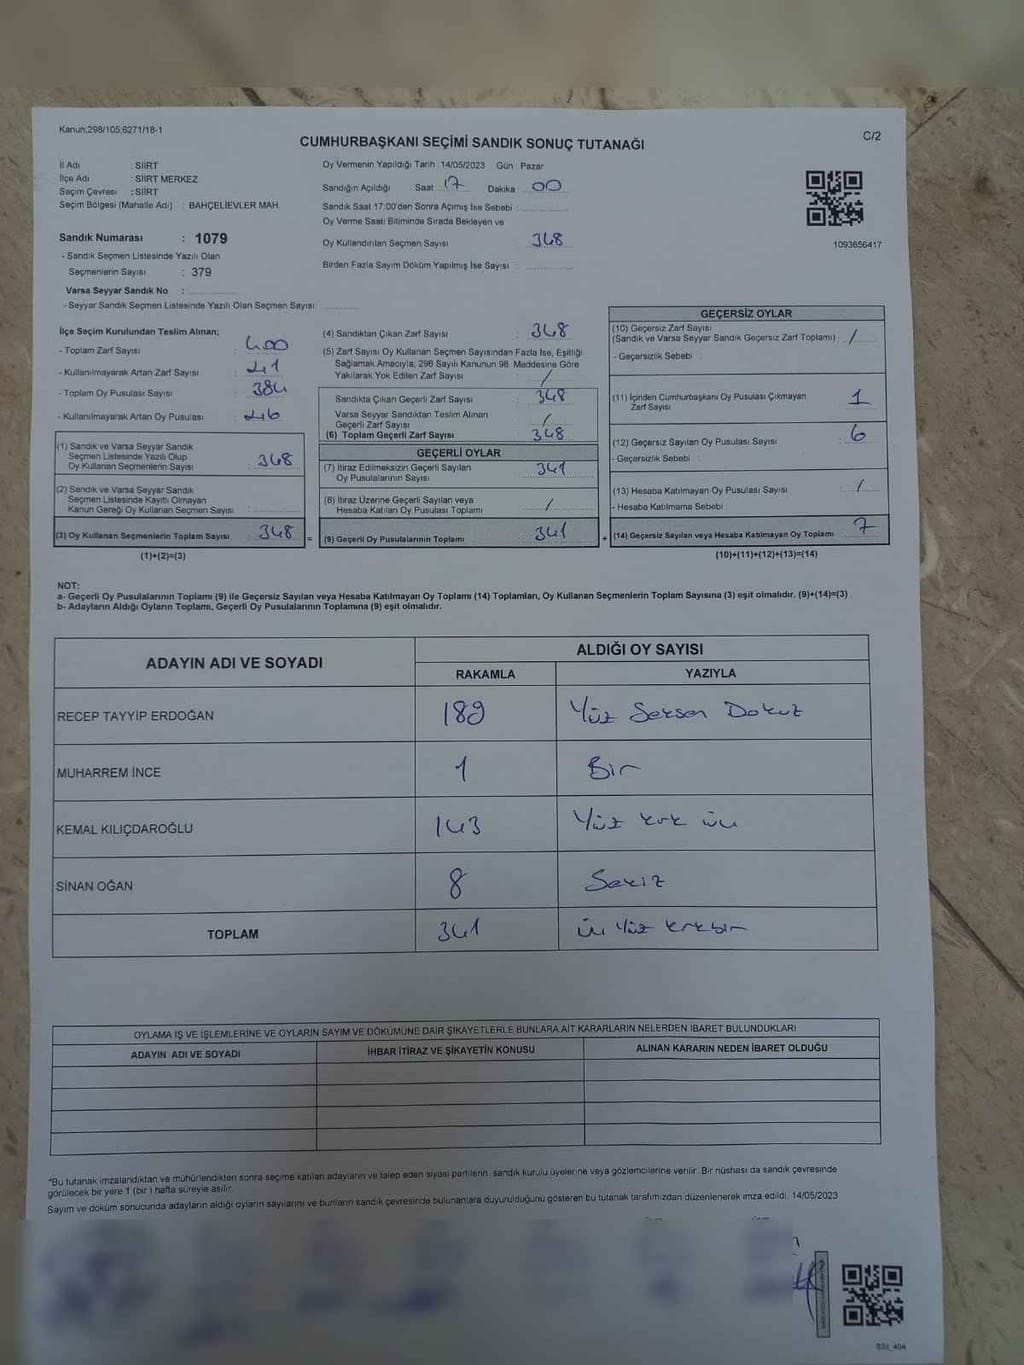 Kanun;298/105;6271/18-1
C/2
CUMHURBAŞKANI SEÇİMİ SANDIK SONUÇ TUTANAĞI
İl Adı : SİİRT
İlçe Adı : SİİRT MERKEZ
Seçim Çevresi : SİİRT
Seçim Bölgesi (Mahalle Adı) : BAHÇELİEVLER MAH.
Oy Vermenin Yapıldığı Tarih : 14/05/2023 Gün : Pazar
Sandığın Açıldığı Saat : 17 Dakika : 00
Sandık Saat 17:00'den Sonra Açımış İse Sebebi :
Oy Verme Saati Bitiminde Sırada Bekleyen ve
Oy Kullandırılan Seçmen Sayısı : 348
Birden Fazla Sayım Döküm Yapılmış İse Sayısı :
1093656417
Sandık Numarası : 1079
- Sandık Seçmen Listesinde Yazılı Olan
Seçmenlerin Sayısı : 379
Varsa Seyyar Sandık No :
- Seyyar Sandık Seçmen Listesinde Yazılı Olan Seçmen Sayısı:
İlçe Seçim Kurulundan Teslim Alınan;
- Toplam Zarf Sayısı : 400
- Kullanılmayarak Artan Zarf Sayısı :
- Toplam Oy Pusulası Sayısı : 384
- Kullanılmayarak Artan Oy Pusulası :
(1) Sandık ve Varsa Seyyar Sandık
Seçmen Listesinde Yazılı Olup
Oy Kullanan Seçmenlerin Sayısı : 348
(2) Sandık ve Varsa Seyyar Sandık
Seçmen Listesinde Kayıtlı Olmayan
Kanun Gereği Oy Kullanan Seçmen Sayısı :
(3) Oy Kullanan Seçmenlerin Toplam Sayısı : 348
(1)+(2)=(3)
(4) Sandıktan Çıkan Zarf Sayısı : 348
(5) Zarf Sayısı Oy Kullanan Seçmen Sayısından Fazla İse, Eşitliği
Sağlamak Amacıyla; 298 Sayılı Kanunun 98. Maddesine Göre
Yakılarak Yok Edilen Zarf Sayısı : /
Sandıkta Çıkan Geçerli Zarf Sayısı : 348
Varsa Seyyar Sandıktan Teslim Alınan
Geçerli Zarf Sayısı : /
(6) Toplam Geçerli Zarf Sayısı : 348
GEÇERLİ OYLAR
(7) İtiraz Edilmeksizin Geçerli Sayılan
Oy Pusulalarının Sayısı : 341
(8) İtiraz Üzerine Geçerli Sayılan veya
Hesaba Katılan Oy Pusulası Toplamı : /
= (9) Geçerli Oy Pusulalarının Toplamı : 341
GEÇERSİZ OYLAR
(10) Geçersiz Zarf Sayısı
(Sandık ve Varsa Seyyar Sandık Geçersiz Zarf Toplamı) : /
- Geçersizlik Sebebi :
(11) İçinden Cumhurbaşkanı Oy Pusulası Çıkmayan
Zarf Sayısı : 1
(12) Geçersiz Sayılan Oy Pusulası Sayısı : 6
- Geçersizlik Sebebi :
(13) Hesaba Katılmayan Oy Pusulası Sayısı : /
- Hesaba Katılmama Sebebi
+ (14) Geçersiz Sayılan veya Hesaba Katılmayan Oy Toplamı : 7
(10)+(11)+(12)+(13)=(14)
NOT:
a- Geçerli Oy Pusulalarının Toplamı (9) ile Geçersiz Sayılan veya Hesaba Katılmayan Oy Toplamı (14) Toplamları, Oy Kullanan Seçmenlerin Toplam Sayısına (3) eşit olmalıdır. (9)+(14)=(3)
b- Adayların Aldığı Oyların Toplamı, Geçerli Oy Pusulalarının Toplamına (9) eşit olmalıdır.
ADAYIN ADI VE SOYADI
ALDIĞI OY SAYISI
RAKAMLA YAZIYLA
RECEP TAYYİP ERDOĞAN 189 Yüz Seksen Dokuz
MUHARREM İNCE 1 Bir
KEMAL KILIÇDAROĞLU 143 Yüz kırk üç
SİNAN OĞAN 8 Sekiz
TOPLAM 341 üç Yüz kırkbir
OYLAMA İŞ VE İŞLEMLERİNE VE OYLARIN SAYIM VE DÖKÜMÜNE DAİR ŞİKAYETLERLE BUNLARA AİT KARARLARIN NELERDEN İBARET BULUNDUKLARI
ADAYIN ADI VE SOYADI İHBAR İTİRAZ VE ŞİKAYETİN KONUSU ALINAN KARARIN NEDEN İBARET OLDUĞU
*Bu tutanak imzalandıktan ve mühürlendikten sonra seçime katılan adayların ve talep eden siyasi partilerin sandık kurulu üyelerine veya gözlemcilerine verilir. Bir nüshası da sandık çevresinde
görülecek bir yere 1 (bir) hafta süreyle asılır.
Sayım ve döküm sonucunda adayların aldığı oyların sayılarını ve bunların sandık çevresinde bulunanlara duyurulduğunu gösteren bu tutanak tarafımızdan düzenlenerek imza edildi. 14/05/2023